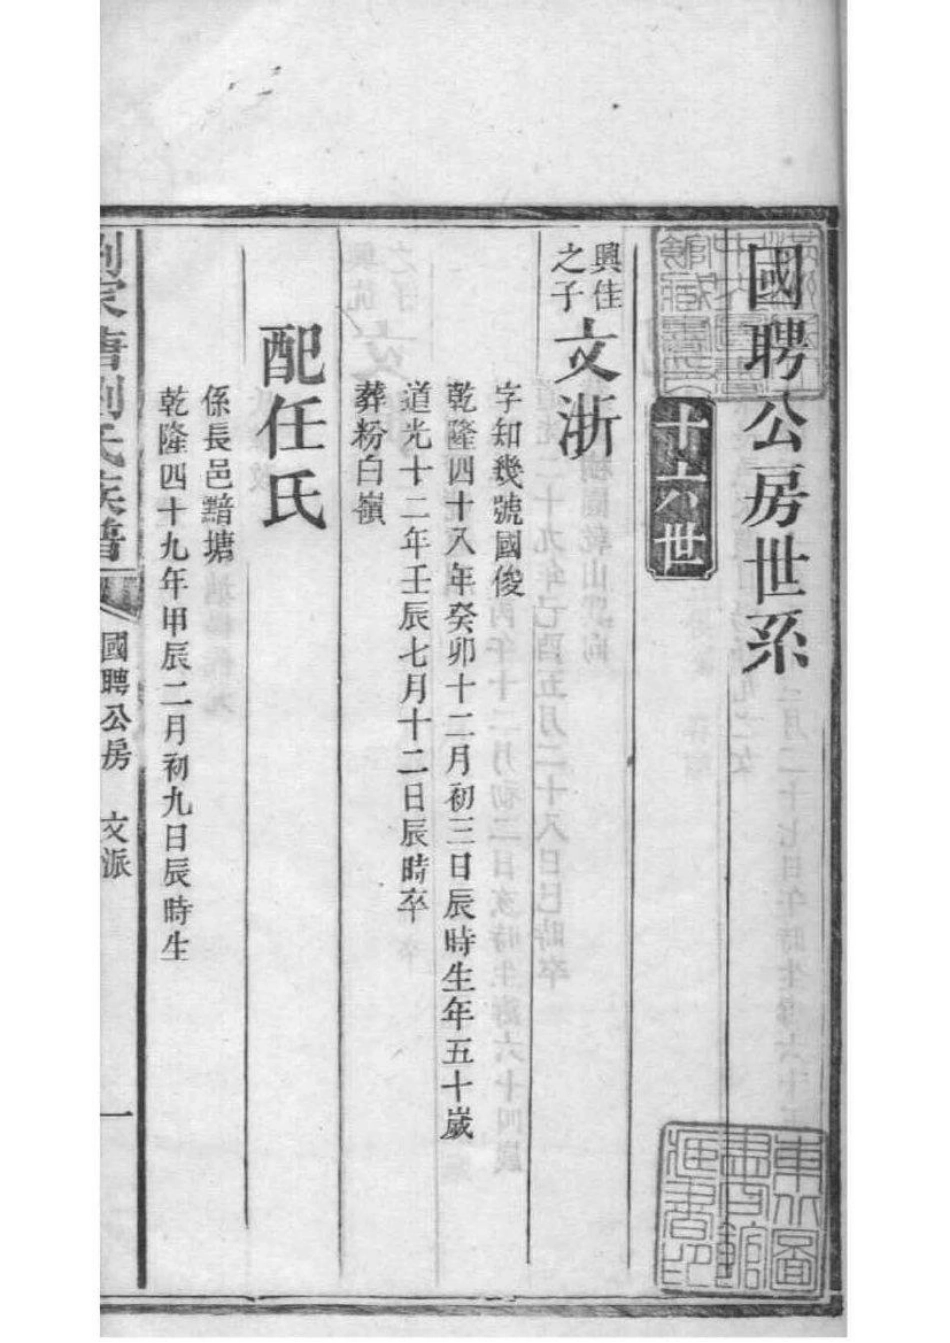 國聘公房世系
十六世
興佳之子
文浙
字知幾號國俊
乾隆四十八年癸卯十二月初三日辰時生年五十歲
道光十二年壬辰七月十二日辰時卒
葬粉白嶺
配任氏
係長邑黯塘
乾隆四十九年甲辰二月初九日辰時生
劉家塘劉氏族譜
國聘公房 文派
一